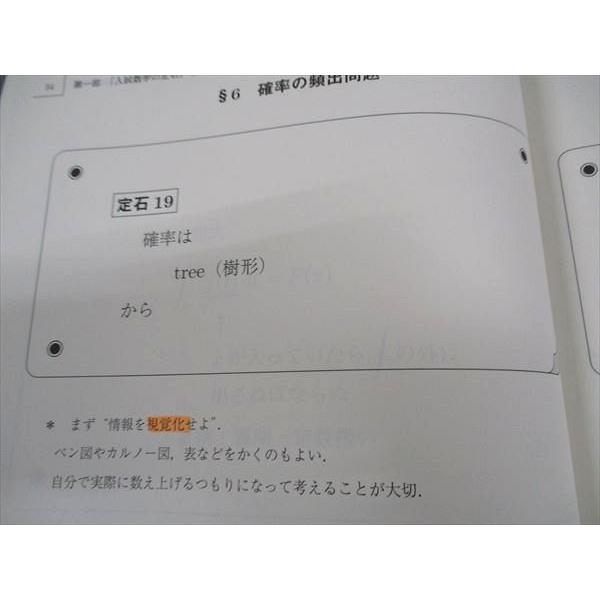 34 第一部 「入試数学の定石」
§6 確率の頻出問題
定石 19
確率は
tree（樹形）
から
* まず“情報を視覚化せよ”.
ベン図やカルノー図，表などをかくのもよい.
自分で実際に数え上げるつもりになって考えることが大切.